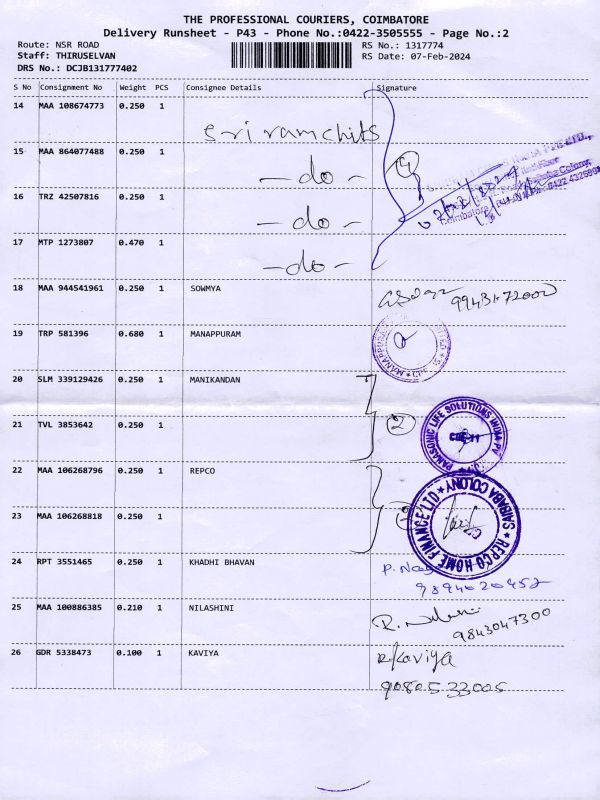 THE PROFESSIONAL COURIERS, COIMBATORE
Delivery Runsheet - P43 - Phone No.:0422-3505555 - Page No.:2
Route: NSR ROAD
Staff: THIRUSELVAN
DRS No.: DCJB131777402
RS No.: 1317774
RS Date: 07-Feb-2024
S No Consignment No Weight PCS Consignee Details Signature
14 MAA 108674773 0.250 1 Sri ram chits
15 MAA 864077488 0.250 1 - do -
4
16 TRZ 42507816 0.250 1 - do -
Coimbatore
17 MTP 1273807 0.470 1 - do -
18 MAA 944541961 0.250 1 SOWMYA
19 TRP 581396 0.680 1 MANAPPURAM
20 SLM 339129426 0.250 1 MANIKANDAN
21 TVL 3853642 0.250 1
2
PANASONIC LIFE SOLUTIONS INDIA PV
CBE-11
22 MAA 106268796 0.250 1 REPCO
REPCO HOME FINANCE LTD
SAIBABA COLONY
23 MAA 106268818 0.250 1
24 RPT 3551465 0.250 1 KHADHI BHAVAN P. Nag
9894020452
25 MAA 100886385 0.210 1 NILASHINI
9843047300
26 GDR 5338473 0.100 1 KAVIYA R.Kaviya
9080533005